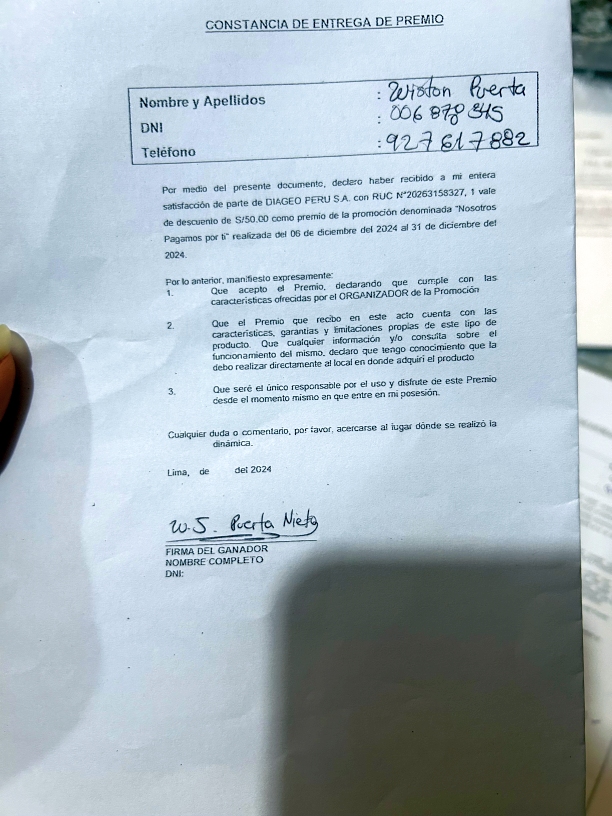 CONSTANCIA DE ENTREGA DE PREMIO
Nombre y Apellidos : Wiston Puerta
DNI : 006 878 345
Teléfono : 927 617 882
Por medio del presente documento, declaro haber recibido a mi entera
satisfacción de parte de DIAGEO PERU S.A. con RUC N°20263158327, 1 vale
de descuento de S/50.00 como premio de la promoción denominada "Nosotros
Pagamos por ti" realizada del 06 de diciembre del 2024 al 31 de diciembre del
2024.
Por lo anterior, manifiesto expresamente:
1. Que acepto el Premio, declarando que cumple con las
características ofrecidas por el ORGANIZADOR de la Promoción
2. Que el Premio que recibo en este acto cuenta con las
características, garantías y limitaciones propias de este tipo de
producto. Que cualquier información y/o consulta sobre el
funcionamiento del mismo, declaro que tengo conocimiento que la
debo realizar directamente al local en donde adquirí el producto
3. Que seré el único responsable por el uso y disfrute de este Premio
desde el momento mismo en que entre en mi posesión.
Cualquier duda o comentario, por favor, acercarse al lugar dónde se realizó la
dinámica.
Lima, de del 2024
W.S. Puerta Nieto
FIRMA DEL GANADOR
NOMBRE COMPLETO
DNI: